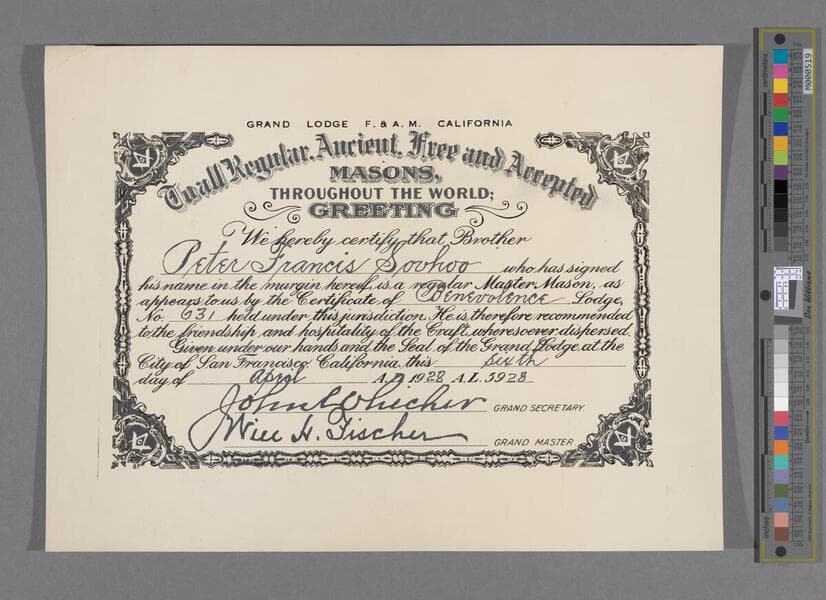 GRAND LODGE F. & A. M. CALIFORNIA
To all Regular, Ancient, Free and Accepted
MASONS,
THROUGHOUT THE WORLD;
GREETING
We hereby certify that Brother
Peter Francis Soohoo who has signed
his name in the margin hereof, is a regular Master Mason, as
appears to us by the Certificate of Benevolence Lodge,
No. 631 held under this jurisdiction. He is therefore recommended
to the friendship and hospitality of the Craft, wheresoever dispersed.
Given under our hands and the Seal of the Grand Lodge, at the
City of San Francisco, California, this sixth
day of April A.D. 1928 A.L. 5928
John Whicher GRAND SECRETARY
Will H. Fischer GRAND MASTER
centimeters
M000519
Don Williams
inches